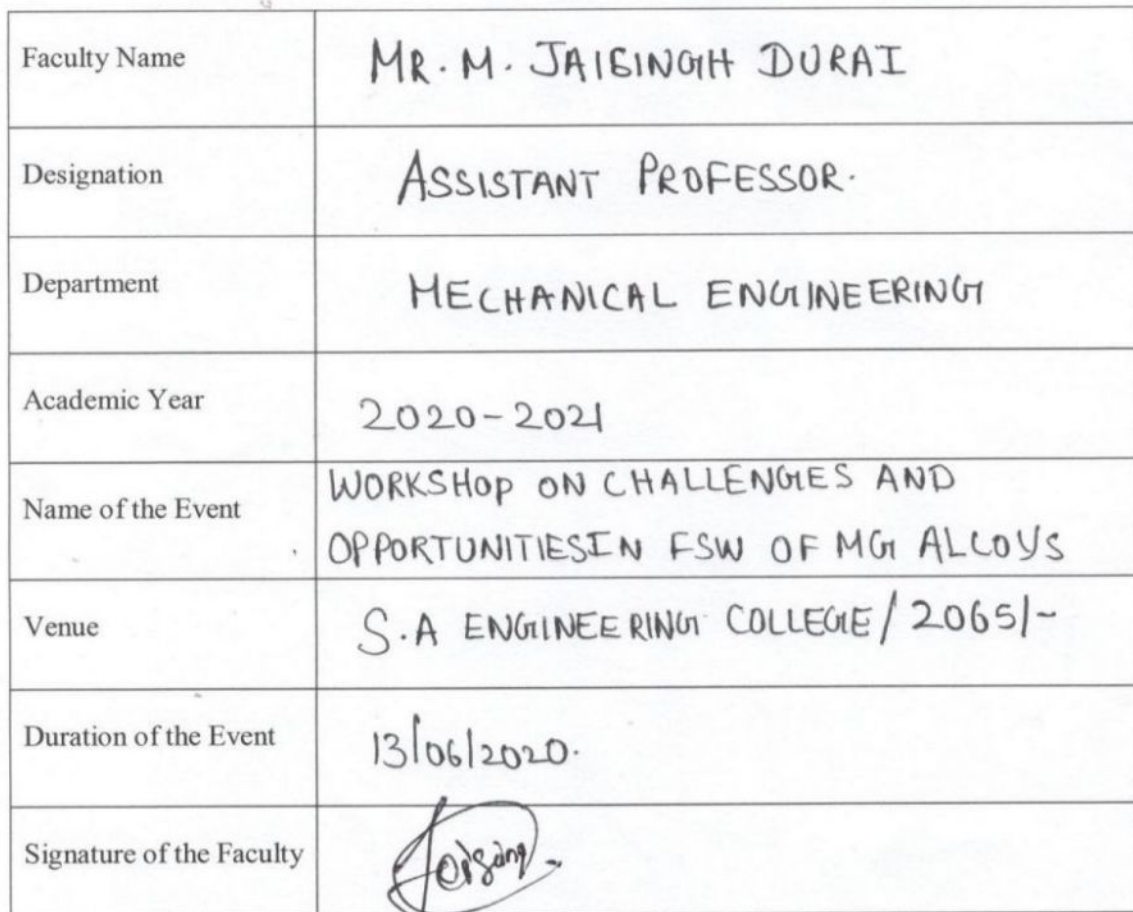 Faculty Name MR. M. JAISINGH DURAI
Designation ASSISTANT PROFESSOR.
Department MECHANICAL ENGINEERING
Academic Year 2020-2021
Name of the Event WORKSHOP ON CHALLENGES AND
OPPORTUNITIESIN FSW OF MG ALLOYS
Venue S.A ENGINEERING COLLEGE/2065/-
Duration of the Event 13/06/2020.
Signature of the Faculty